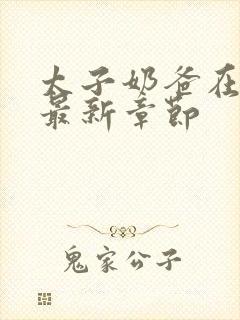 太子奶爸在
最新章节
鬼家公子